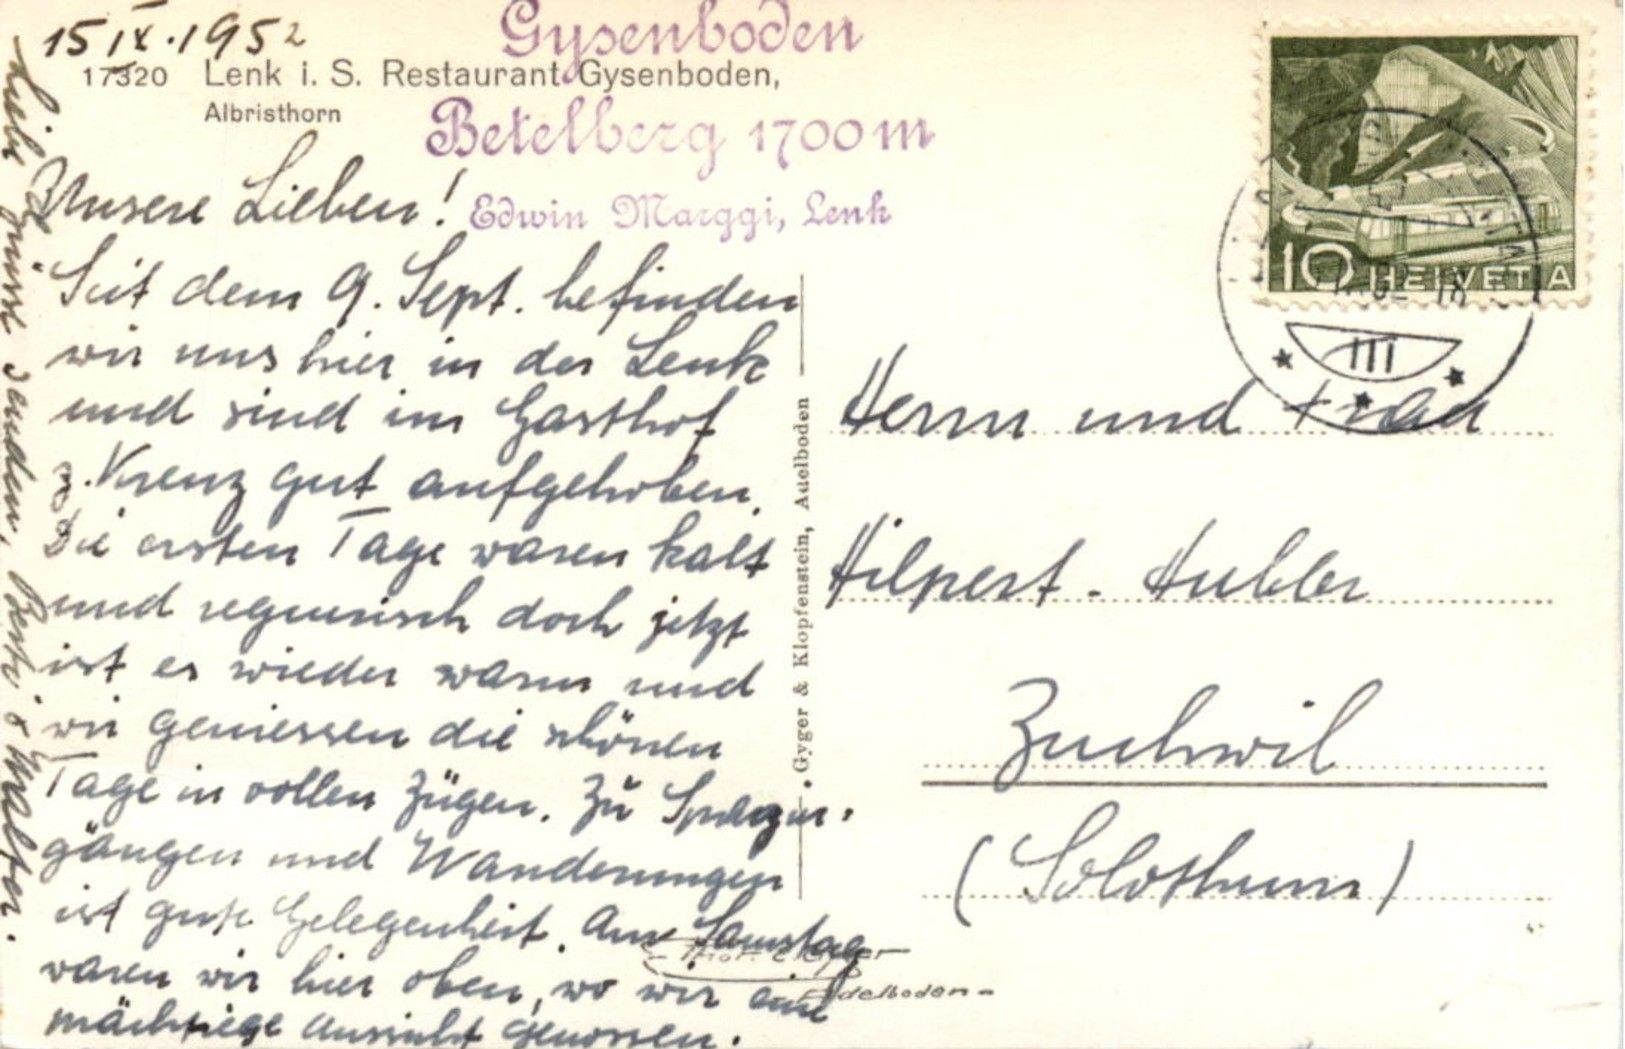 15 IX. 1952
17320 Lenk i. S. Restaurant Gysenboden,
Albristhorn
Gysenboden
Betelberg 1700 m
Edwin Marggi, Lenk
10 HELVETIA
III
Unsere Lieben!
Seit dem 9. Sept. befinden
wir uns hier in der Lenk
und sind im Gasthof
z. Kreuz gut aufgehoben.
Die ersten Tage waren kalt
und regnerisch doch jetzt
ist es wieder warm und
wir geniessen die schönen
Tage in vollen Zügen. Zu Spazier-
gängen und Wanderungen
ist gute Gelegenheit. Am Samstag
waren wir hier oben, wo wir eine
mächtige Aussicht genossen.
Liebe Grüsse senden, & Walter.
Gyger & Klopfenstein, Adelboden
Herrn und Frau
Hilpert-Hubler
Zuchwil
(Solothurn)
Adelboden -